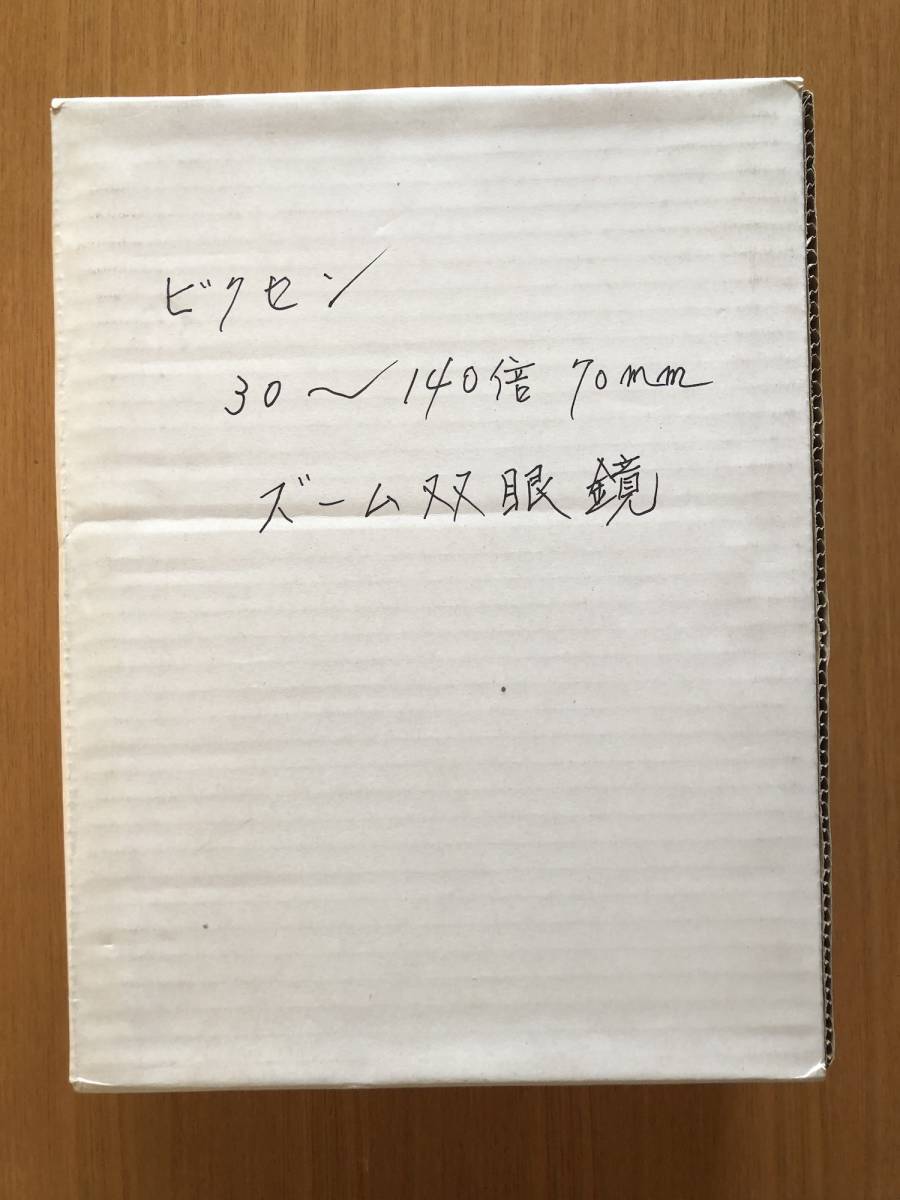 ビクセン
30〜140倍 70mm
ズーム双眼鏡